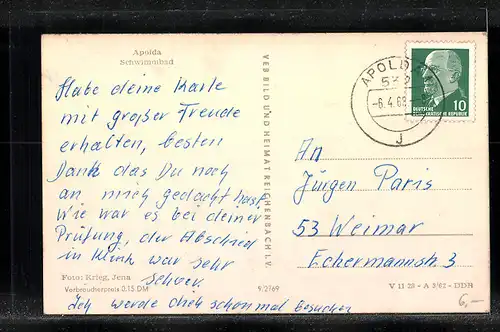 Apolda
Schwimmbad
Habe deine Karte
mit großer Freude
erhalten, besten
Dank das Du noch
an mich gedacht hast.
Wie war es bei deiner
Prüfung, der Abschied
in Klink war sehr
schwer.
Ich werde dich schonmal besuchen
Foto: Krieg, Jena
Verbraucherpreis 0,15 DM
9/2769
VEB BILD UND HEIMAT REICHENBACH I. V.
APOLDA
532
-6.4.63
J
10
DEUTSCHE
DEMOKRATISCHE REPUBLIK
An
Jürgen Paris
53 Weimar
Eckermannstr. 3
V 11 28 - A 3/62 - DDR
6,-